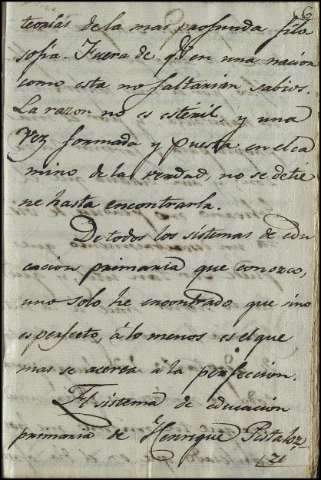 teorías de la mas profunda filo
sofia. Fuera de qe. en una nacion
como esta no faltarian sabios.
La razon no es estéril, y una
vez formada y puesta en el ca
mino de la verdad, no se detie
ne hasta encontrarla.
De todos los sistemas de edu
cacion primaria que conozco,
uno solo he encontrado que sino
es perfecto, á lo menos es el que
mas se acerca a la perfeccion.
El sistema de educacion
primaria de Henrique Pistaloz
zi